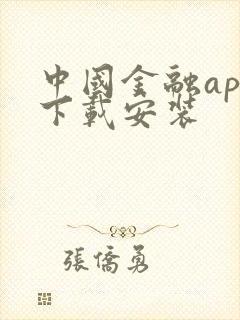 中國金融ap
下載安裝
張僑勇